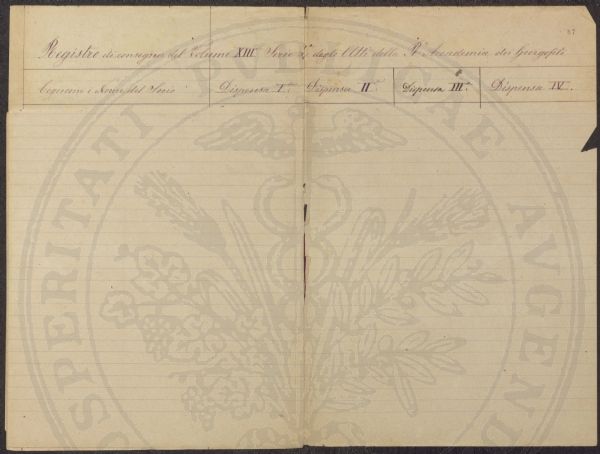 87
Registro di consegna del Volume XIII Serie 4ª degli Atti della Rª Accademia dei Georgofili
Cognome e Nome del Socio Dispensa I. Dispensa II. Dispensa III. Dispensa IV.
PROSPERITATI PUBLICAE AVGENDAE